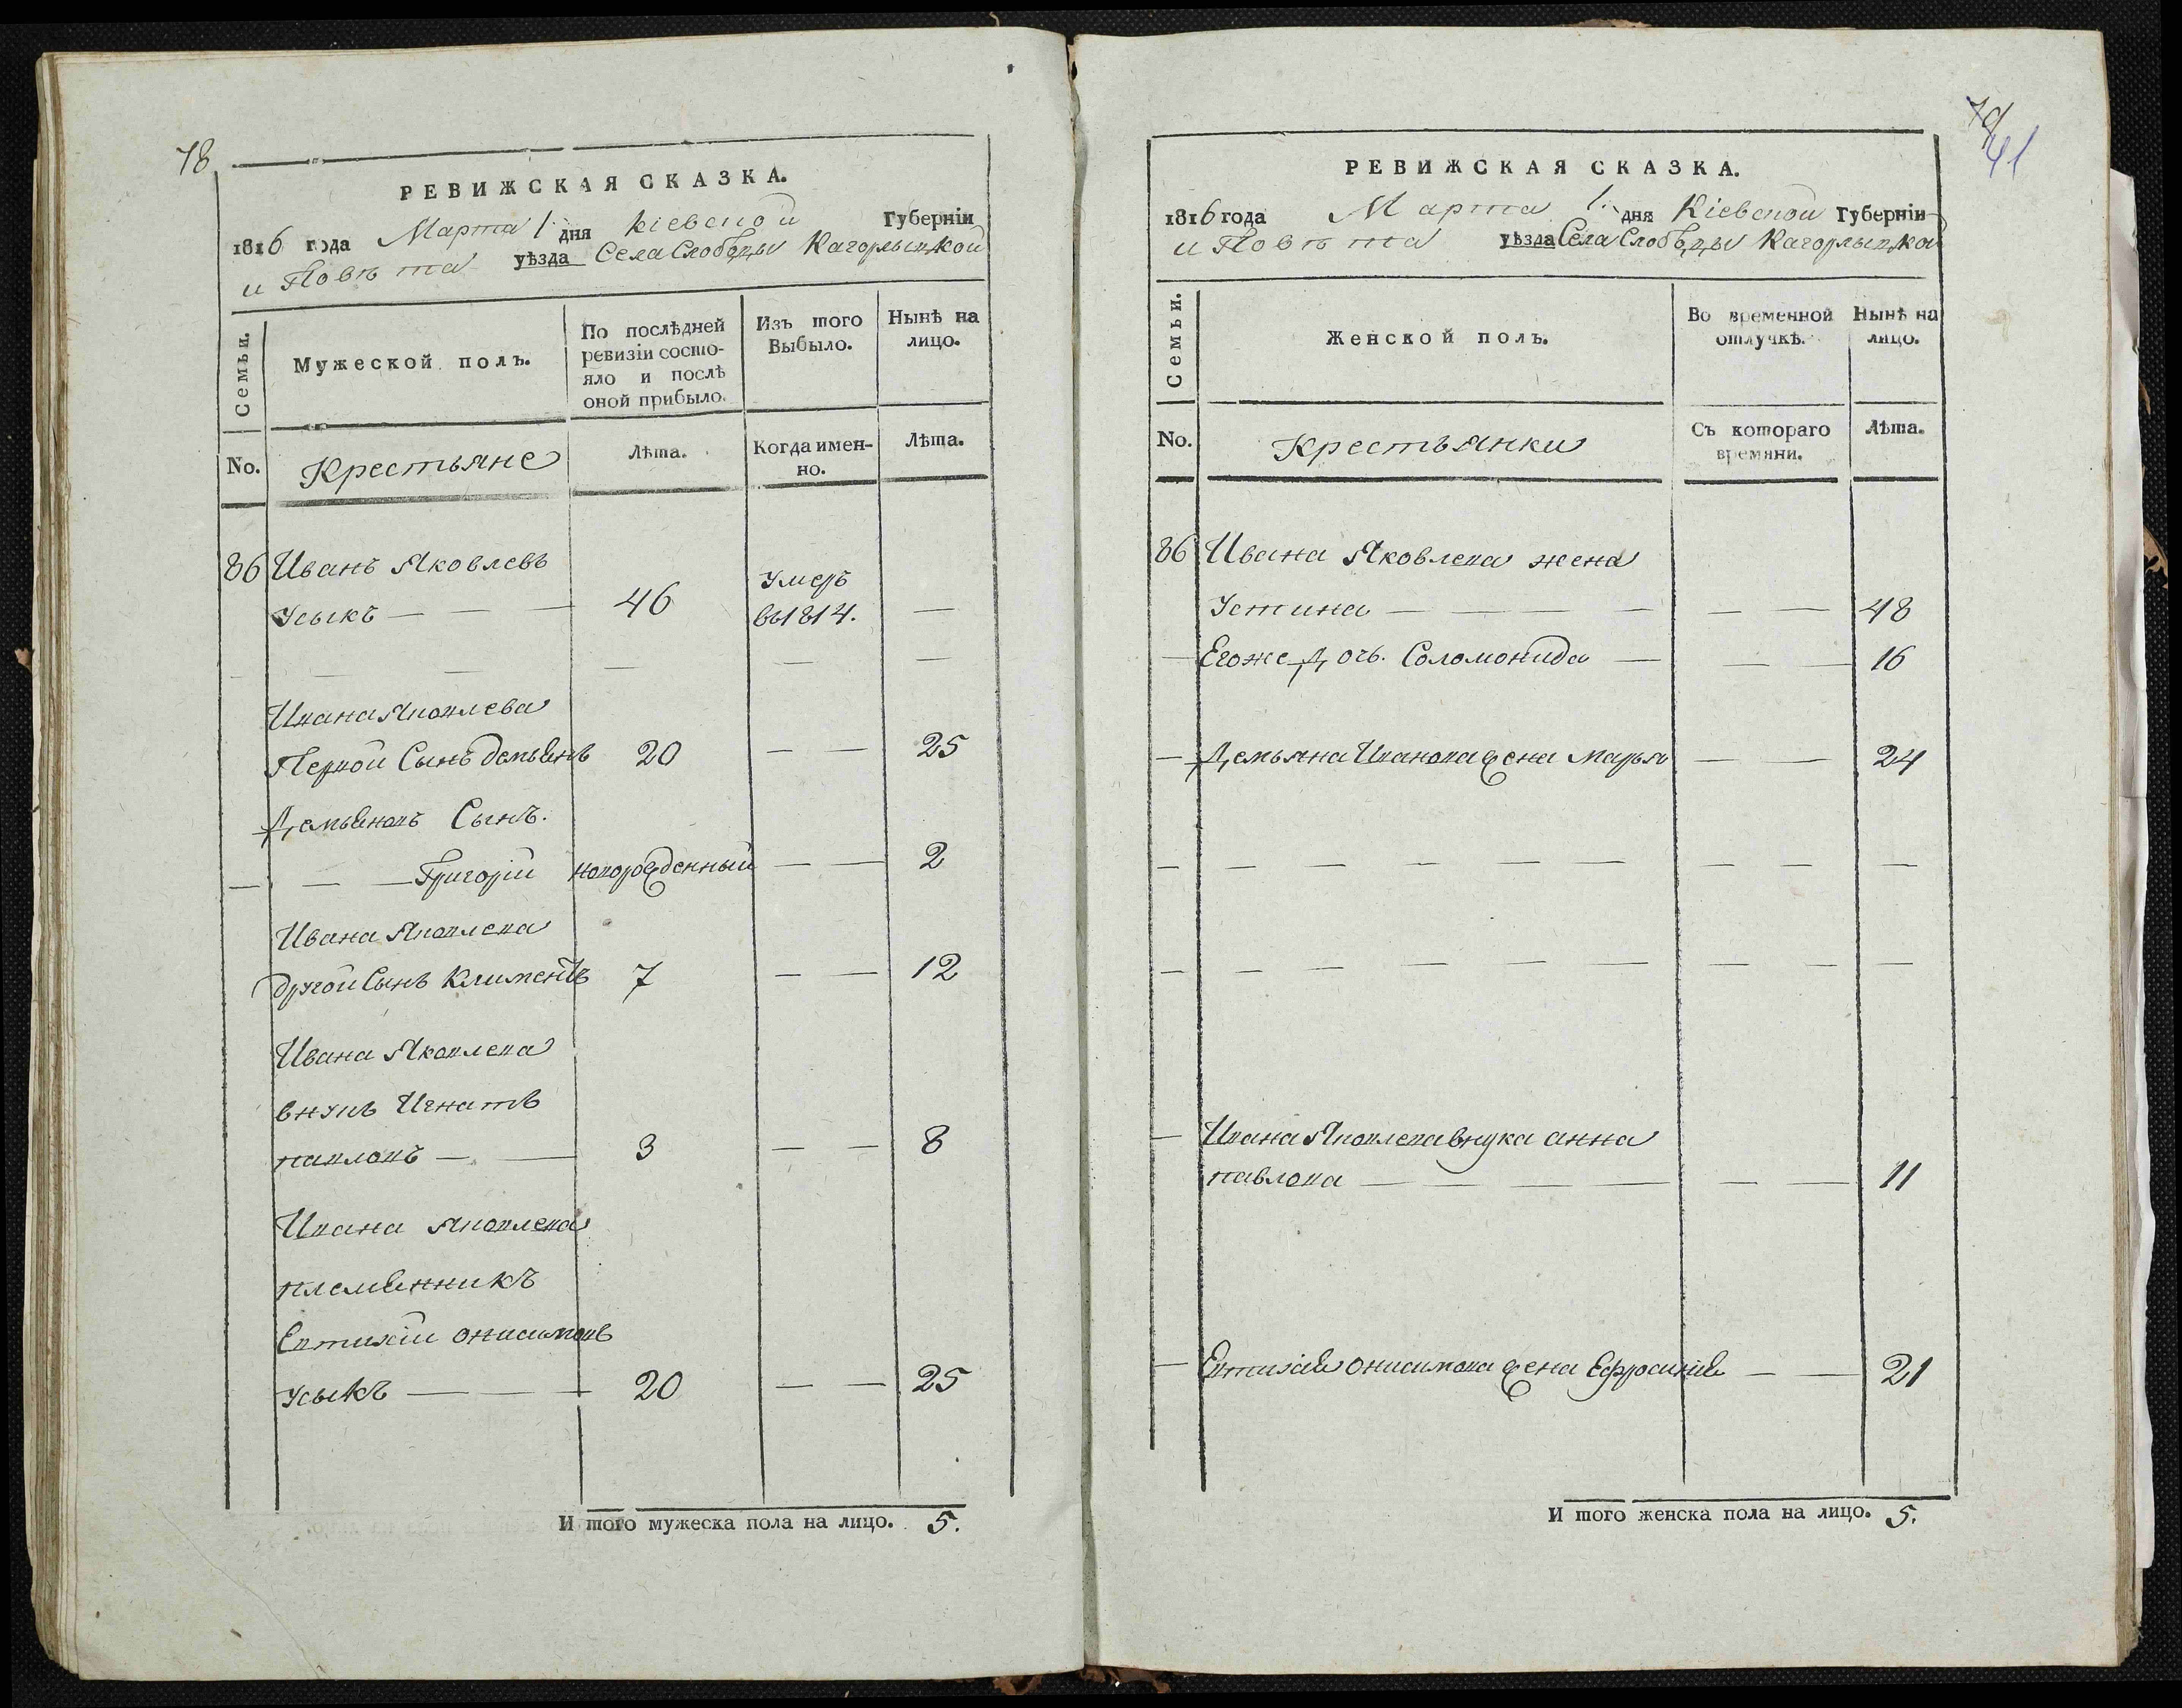 78
РЕВИЖСКАЯ СКАЗКА.
1816 года Марта 1. дня Кіевской Губерніи
и Повѣта уѣзда Села Слободы Кагорлыцкой
Семьи.
Мужеской полъ.
По послѣдней ревизіи состояло и послѣ оной прибыло.
Изъ того Выбыло.
Нынѣ на лицо.
No.
Крестьяне
Лѣта.
Когда именно.
Лѣта.
86 Иванъ Яковлевъ
Усыкъ — — — 46 Умеръ въ 1814. —
— — — — —
Ивана Яковлева
Первой Сынъ демьянъ 20 — — 25
Демьяновъ Сынъ.
— — — Григорій новорожденный — — 2
Ивана Яковлева
другой Сынъ Климентъ 7 — — 12
Ивана Яковлева
внукъ Игнатъ
павловъ — — 3 — — 8
Ивана Яковлева
племянникъ
Евтихій онисимовъ
Усыкъ — — — 20 — — 25
И того мужеска пола на лицо. 5.
79
41
РЕВИЖСКАЯ СКАЗКА.
1816 года Марта 1. дня Кіевской Губерніи
и Повѣта уѣзда Села Слободы Кагорлыцкой
Семьи.
Женской полъ.
Во временной отлучкѣ.
Нынѣ на лицо.
No.
Крестьянки
Съ котораго времяни.
Лѣта.
86 Ивана Яковлева жена
Устина — — — — — — 48
— Егоже Дочь. Соломонида — — — 16
— Демьяна Иванова жена Марья — — 24
— — — — — — — — —
— — — — — — — — —
— Ивана Яковлева внука анна
павлова — — — — — — 11
— Евтихія онисимова жена Ефросинія — — 21
И того женска пола на лицо. 5.